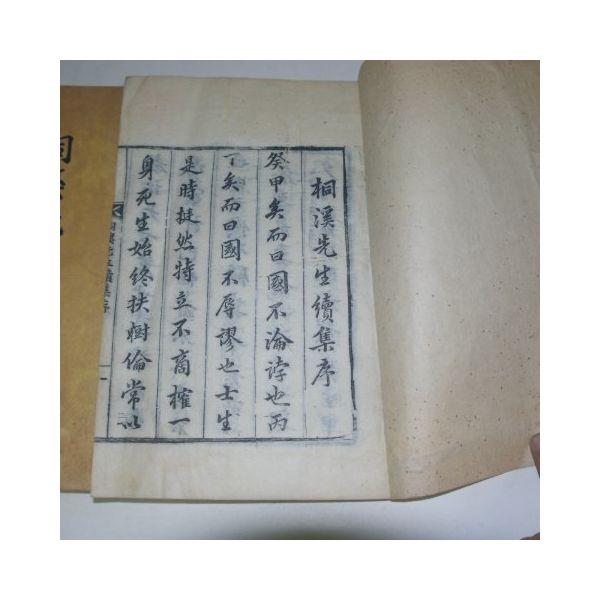 桐溪先生續集序
癸甲矣而曰國不淪誖也丙
丁矣而曰國不辱謬也士生
是時挺然特立不商搉一
身死生始終扶樹倫常以
桐溪先生續集序
一
桐